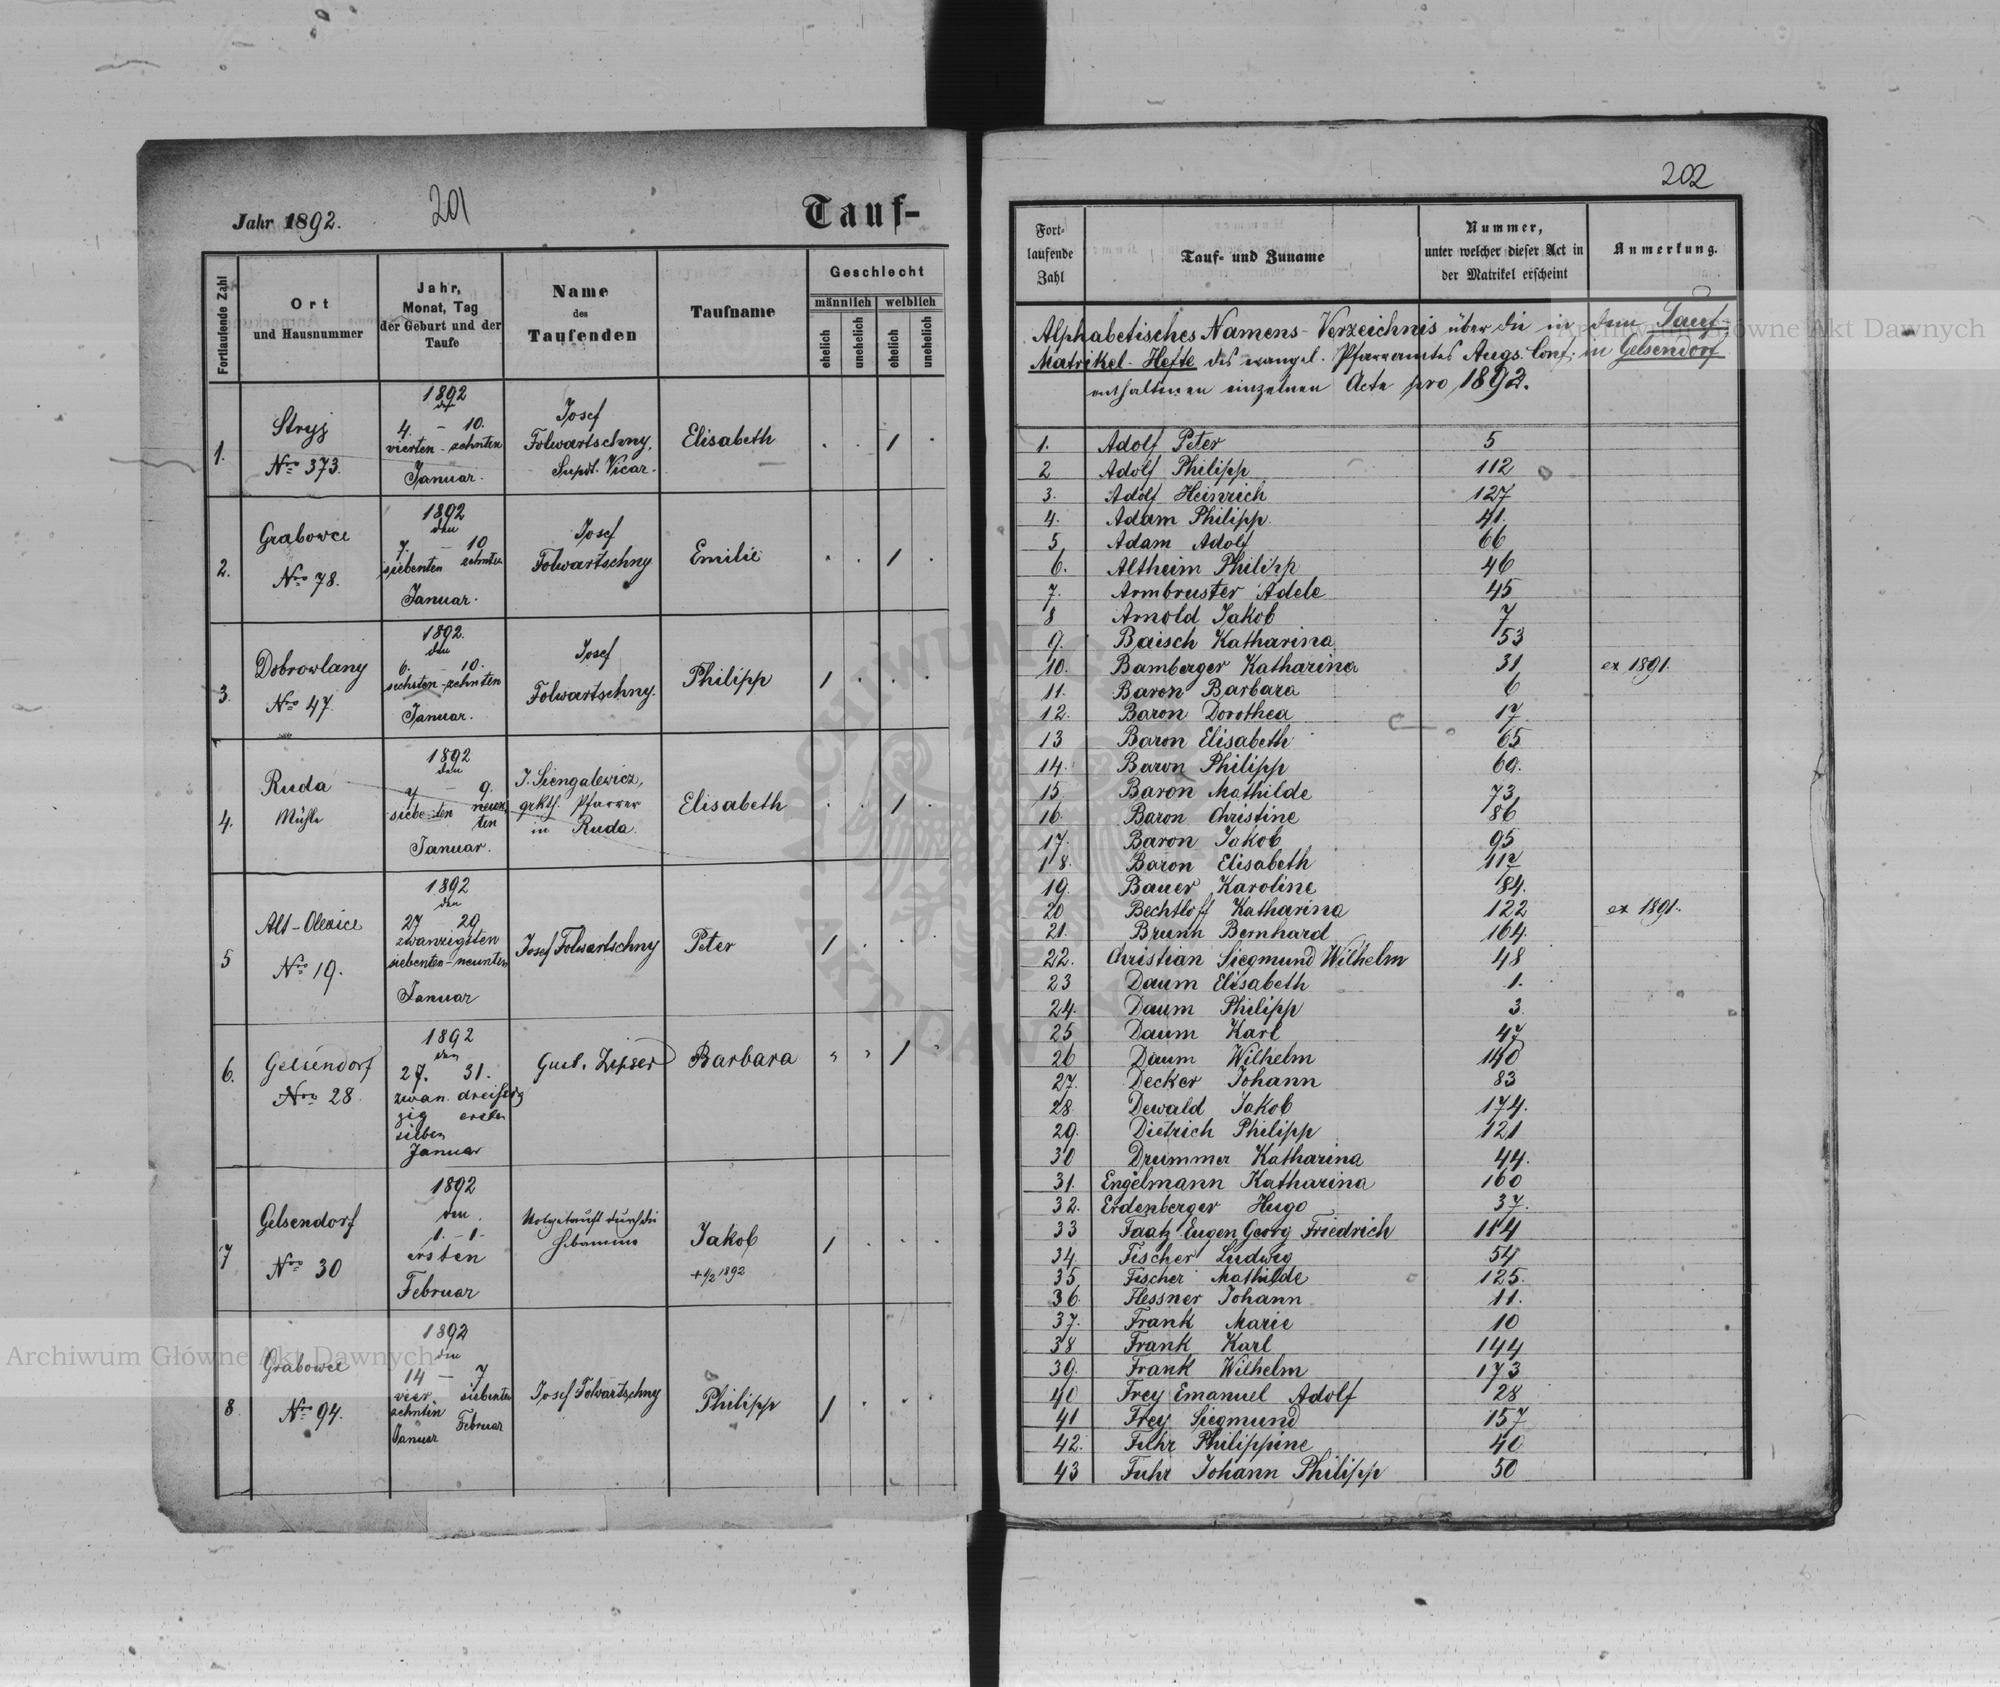 201
Jahr 1892.
Tauf-
Fortlaufende Zahl
Ort
und Hausnummer
Jahr,
Monat, Tag
der Geburt und der
Taufe
Name
des
Taufenden
Taufname
Geschlecht
männlich weiblich
ehelich unehelich ehelich unehelich
1.
Stryj
Nro 373.
1892
den
4. – 10.
vierten - zehnten
Januar.
Josef
Folwartschny,
Supdt. Vicar.
Elisabeth
. . 1 .
2.
Grabowce
Nro 78.
1892
den
7. – 10
siebenten zehnten
Januar.
Josef
Folwartschny
Emilie
. . 1 .
3.
Dobrowlany
Nro 47.
1892.
den
6. – 10.
sechsten - zehnten
Januar.
Josef
Folwartschny.
Philipp
1 . . .
4.
Ruda
Mühle
1892
den
7 – 9.
siebenten neun
ten
Januar.
J. Siengalewicz,
grkth. Pfarrer
in Ruda.
Elisabeth
. . 1 .
5
Alt-Olexice
Nro 19.
1892
den
27 29
zwanzigsten
siebenten - neunten
Januar
Josef Folwartschny
Peter
1 . . .
6.
Gelsendorf
Nro 28
1892
den
27. 31.
zwan dreißig
zig ersten
sieben
Januar
Gust. Zipser
Barbara
1
7
Gelsendorf
Nro 30
1892
den
1. – 1.
ersten
Februar
Notgetauft durch die
Hebamme
Jakob
+ 1/2 1892
1 . . .
8
Grabowce
Nro 94.
1892
den
14 – 7
vier siebenten
zehnten Februar
Januar
Josef Folwartschny
Philipp
1 . . .
202
Fort-
laufende
Zahl
Tauf- und Zuname
Nummer,
unter welcher dieser Act in
der Matrikel erscheint
Anmerkung.
Alphabetisches Namens-Verzeichnis über die in dem Tauf-
Matrikel-Hefte des evangel. Pfarramtes Augs. Conf. in Gelsendorf
enthaltenen einzelnen Acte pro 1892.
1. Adolf Peter 5
2 Adolf Philipp 112
3. Adolf Heinrich 127
4. Adam Philipp 41.
5 Adam Adolf 66
6. Altheim Philipp 46
7. Armbruster Adele 45
8 Arnold Jakob 7
9. Baisch Katharina 53
10. Bamberger Katharina 31 ex 1891.
11. Baron Barbara 6
12. Baron Dorothea 17.
13 Baron Elisabeth 65
14. Baron Philipp 69.
15 Baron Mathilde 73
16. Baron Christine 86
17. Baron Jakob 95
18. Baron Elisabeth 117
19. Bauer Karoline 84.
20 Bechtloff Katharina 122 ex 1891.
21. Brunn Bernhard 164.
22. Christian Siegmund Wilhelm 48
23 Daum Elisabeth 1.
24. Daum Philipp 3
25 Daum Karl 47
26 Daum Wilhelm 140
27. Decker Johann 83
28. Dewald Jakob 174.
29. Dietrich Philipp 121
30 Drummer Katharina 44.
31. Engelmann Katharina 160
32. Erdenberger Hugo 37.
33 Faatz Eugen Georg Friedrich 114
34. Fischer Ludwig 54
35. Fischer Mathilde 125.
36. Flessner Johann 11.
37. Frank Marie 10
38 Frank Karl 144
39. Frank Wilhelm 173
40 Frey Emanuel Adolf 28
41 Frey Siegmund 157
42. Fuhr Philippine 40
43 Fuhr Johann Philipp 50
Archiwum Główne Akt Dawnych
Archiwum Główne Akt Dawnych